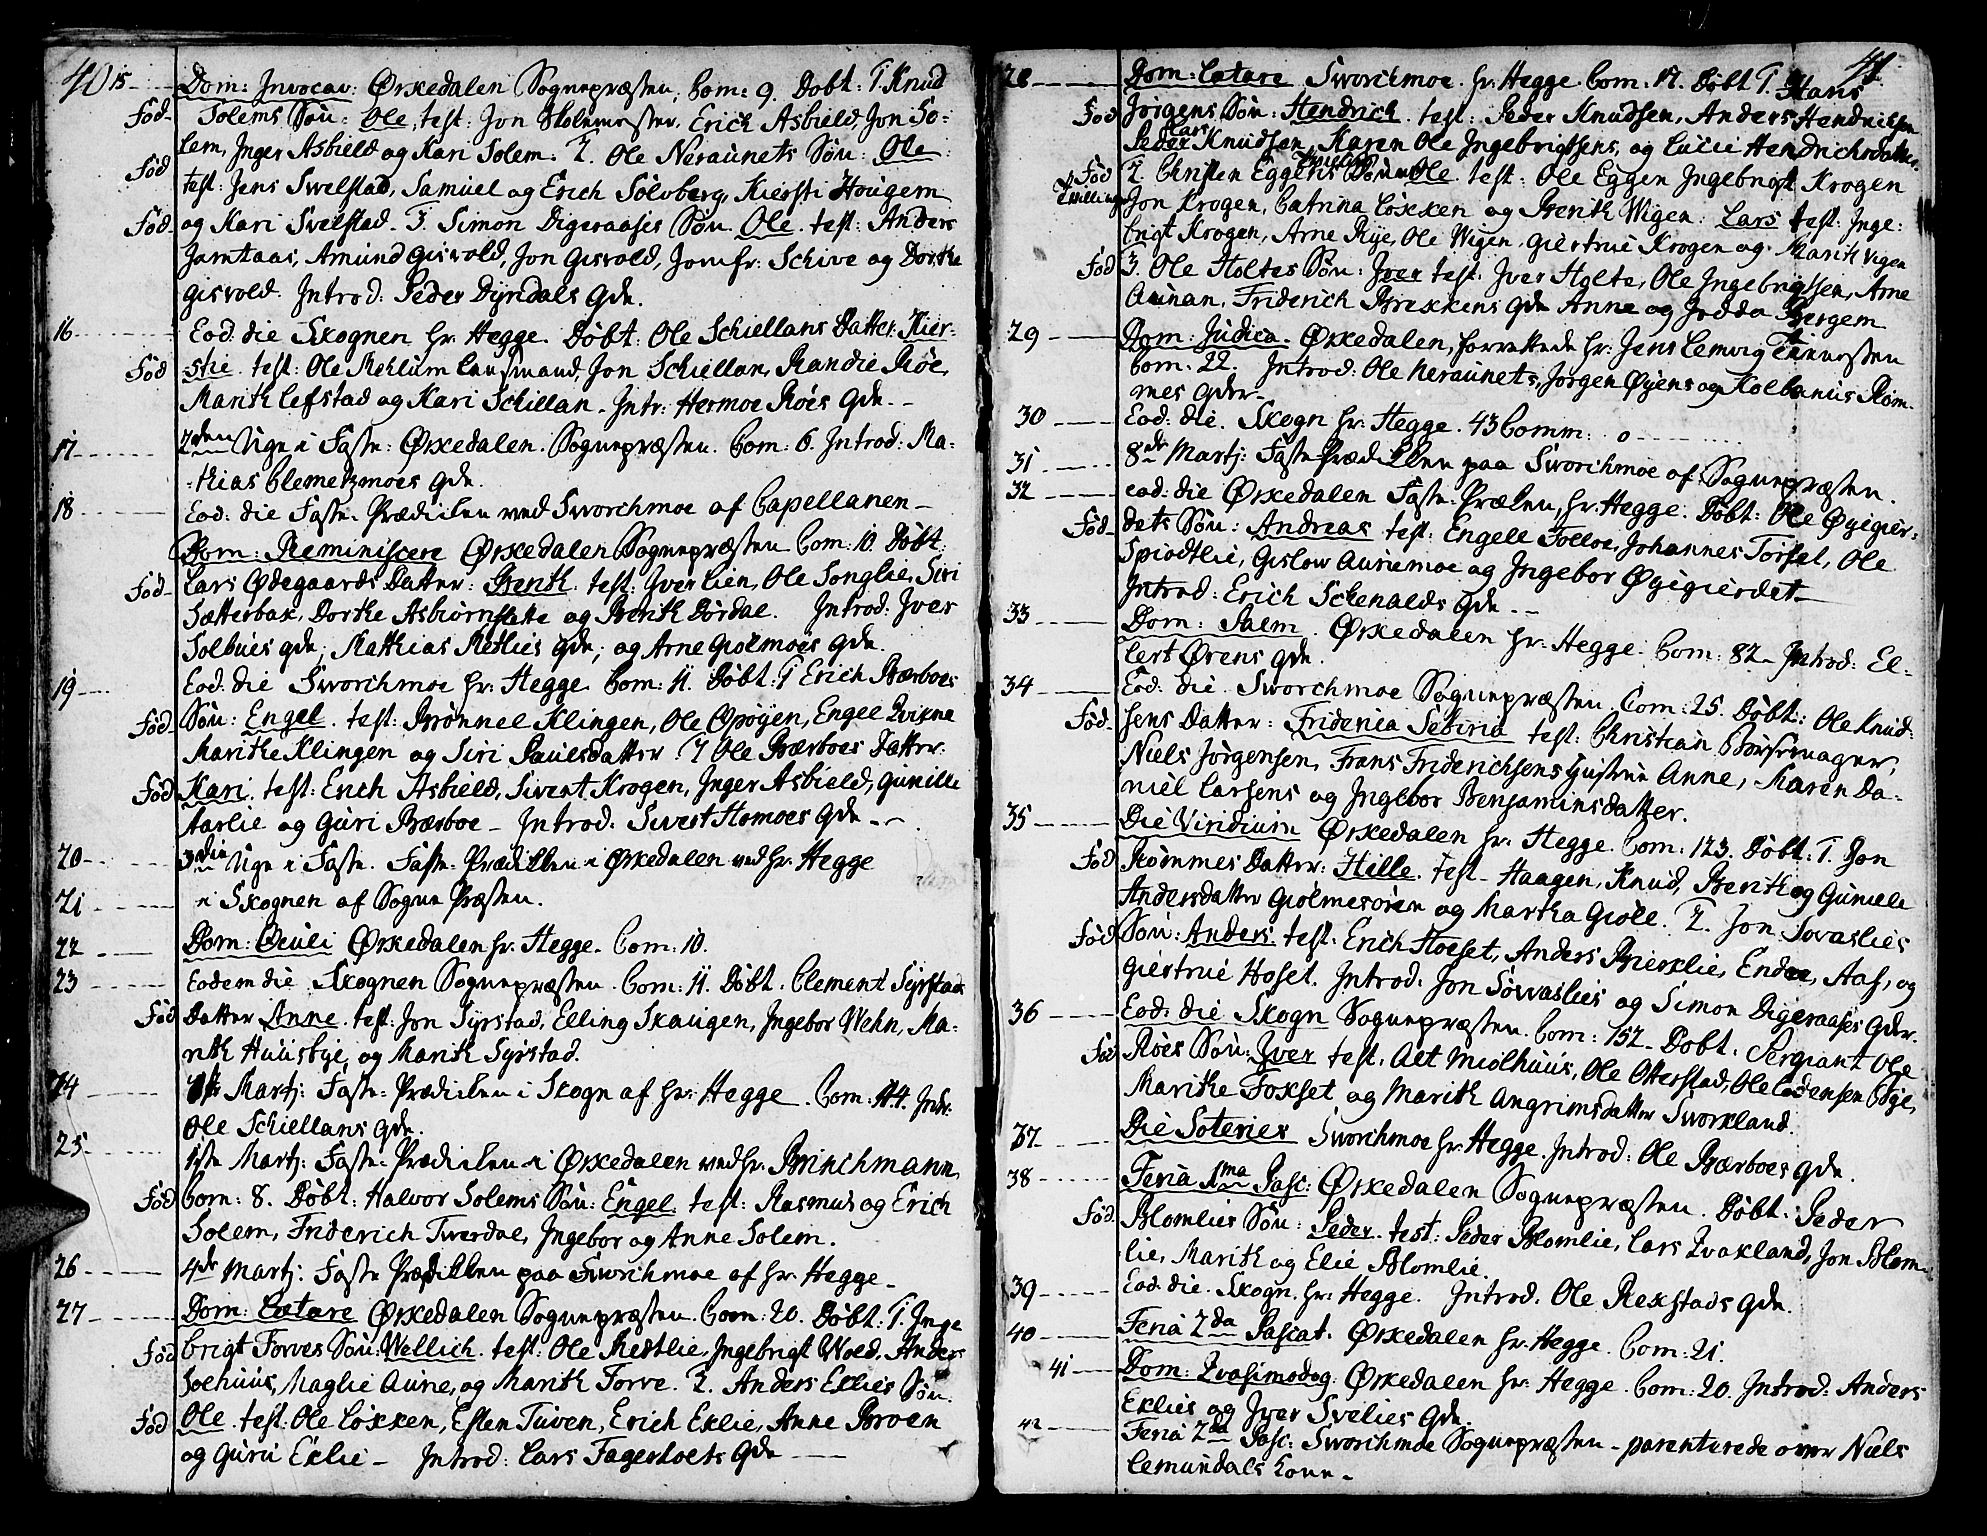 40
15 Dom: Invocav: Ørkedalen Sognepræsten, Com: 9. Døbt: 1. Knud
Fød Solems Søn: Ole, test: Jon Skolemester, Erich Asbield, Jon So-
lem, Inger Asbield og Kari Solem. 2. Ole Neraunets Søn: Ole
Fød test: Jens Svelstad, Samuel og Erich Solvberg, Kiersti Hougem
Fød og Kari Svelstad. 3. Simon Digeraases Søn Ole test: Anders
Jamtaas, Amund Gisvold, Jon Gisvold, Jomfr: Schive og Dorthe
Gisvold. Introd: Peder Dyrdals Qde.
16 Eod: die Skognen hr: Hegge. Døbt: Ole Schiellans Datter Kier-
Fød stie. test: Ole Rehlum Lensmand, Jon Schiellan, Randie Røe,
Marith Lefstad og Kari Schillan. Intr: Hermoe Røes Qde.
17 2den Uge i Faste: Ørkedalen. Sognepræsten. Com: 6. Introd: Ma-
thias Clemetzmoes Qde.
18 Eod: die Faste-Prædiken ved Svorchmoe af Capellanen
Dom: Reminiscere Ørkedalen Sognepræsten Com: 10. Døbt
Fød Lars Ødegaards Datter: Berith. test: Iver Lien, Ole Songlie, Siri
Sætterbak, Dorthe Asbiørnslette og Berith Dørdal. Introd: Iver
Solbues Qde, Mathias Retlies Qde, og Arne Giolmoes Qde.
19 Eod: die Svorchmoe hr: Hegge. Com: 11. Døbt: 1 Erich Bærboes
Fød Søn: Engel. test: Brønnel Klingen, Ole Opøyen, Engel Qvikne
Marithe Klingen og Siri Paulsdatter. 2 Ole Bærboes Datter:
Fød Kari. test: Erich Asbield, Sivert Krogen, Inger Asbield, Gunille
Aarlie og Guri Bærboe. Introd: Sivert Homoes Qde.
20 3die Uge i Faste. Faste-Prædiken i Ørkedalen ved hr: Hegge
21 i Skognen af Sogne Præsten.
22 Dom: Oculi Ørkedalen hr: Hegge. Com: 10.
23 Eodem die Skognen Sognepræsten. Com: 11. Døbt. Clement Syrstads
Fød Datter Anne. test: Jon Syrstad, Elling Skaugen, Ingebor Wehn, Ma-
rith Huusbye og Marith Syrstad.
24 Martj: Faste-Prædiken i Skogn af hr: Hegge. Com: 44. Intr:
Ole Schiellans Qde.
25 Martj: Faste-Prædiken i Ørkedalen ved hr: Brinchmann,
Fød Com: 8. Døbt: Halvor Solems Søn: Engel. test: Rasmus og Erich
Solem, Friderich Tverdal, Ingebor og Anne Solem.
26 4de Martj: Faste Prædiken paa Svorchmoe af hr: Hegge
27 Dom: Lætare Ørkedalen Sognepræsten. Com: 20. Døbt: 1. Inge
Fød brigt Forves Søn: Wellich. test: Ole Redtlie, Ingebrigt Wold, Anders
Soehuus, Maglie Aune, og Marith Forve. 2. Anders Eklies Søn
Fød Ole. test: Ole Løkken, Esten Tuven, Erich Eklie, Anne Broen
og Guru Eklie. Introd: Lars Fagerhoels Qde
41
28 Dom: Lætare Svorchmoe. hr: Hegge. Com: 17. Døbt 1. Hans
Fød Jørgens Søn: Hendrich. test: Peder Knudsen, Anders Hendrichsen
Lars
Peder Knudsen, Karen Ole Ingebrigtsens, og Lucie Hendrichsdatter
Fød 2. Christen Eggens Sønner Ole. test: Ole Eggen Ingebrigt Krogen
Tvilling Jon Krogen, Catrina Løkken og Berith Wigen: Lars test: Inge:
brigt Krogen, Arne Rye, Ole Wigen, Giertrue Krogen og Marith Vigen
Fød 3. Ole Holtes Søn: Iver test: Iver Holte, Ole Ingebrigtsen, Arne
Aunan, Friderich Brekkens Qde Anne og Jodda Bergem
29 Dom: Judica. Ørkedalen, forrettede hr: Jens Lemvig
Com: 22. Introd: Ole Neraunets, Jørgen Øyens og Kolbanus Røm-
mes Qder.
30 Eod: die. Skogn hr: Hegge. 43 Comm: 0
31 8de Martj: Faste Prædiken paa Svorchmoe af Sognepræsten.
32 eod: die Ørkedalen Faste-Præken, hr: Hegge. Døbt: Ole Øyigier-
Fød dets Søn: Andreas test: Engell Folloe, Johannes Torsel, Ole
Spiodtlie, Gislow Auniemoe og Ingebor Øyigierdet
Introd: Erich Schenalds Qde.
33 Dom: Palm. Ørkedalen hr: Hegge. Com: 82. Introd: El-
lert Ørens Qde.
34 Eod: die. Svorchmoe Sognepræsten. Com: 25. Døbt: Ole Knud-
Fød sens Datter: Fridericia Severia test: Christian Børsemager,
Niels Jørgensen, Frans Friderichsens Hustrue Anne, Maren Da-
niel Larsens og Ingebor Benjaminsdatter.
35 Die Viridium Ørkedalen hr: Hegge. Com: 123. Døbt: 1. Jon
Fød Rømmes Datter: Hille. test. Haagen, Knud, Berith og Gunele
Andersdatter Giolmesøren og Martha Giøle. 2. Jon Sovaslies
Fød Søn: Anders. test: Erich Hoeset, Anders Bierklie, Endre, Aas, og
Giertrue Hoset. Introd: Jon Søvaslies og Simon Digeraases Qder.
36 Eod: die Skogn Sognepræsten. Com: 152. Døbt. Sergiant Ole
Fød Røes Søn: Iver test. Alt Miølhuus, Ole Otterstad, Ole Bye,
Marithe Foxset og Marith Angrimsdatter Svorkland.
37 Die Soteries Svorchmoe hr: Hegge. Introd: Ole Bærboes Qde.
38 Feria 1ma Pasc: Ørkedalen Sognepræsten. Døbt: Peder
Fød Blomlies Søn: Peder. test: Peder Blomlie, Lars Qvakland, Jon Blom-
lie, Marith og Elie Blomlie.
39 Eod: die. Skogn. hr: Hegge. Introd. Ole Rekstads Qde.
40 Feria 2da Pascat. Ørkedalen hr: Hegge. Com: 21.
41 Dom: Qvasimodog: Ørkedalen hr: Hegge. Com: 20. Introd: Anders
Eklies og Iver Svelies Qde.
42 Feria 2da Pasc: Svorchmoe Sognepræsten. parenterede over Niels
Lemundals Kone.